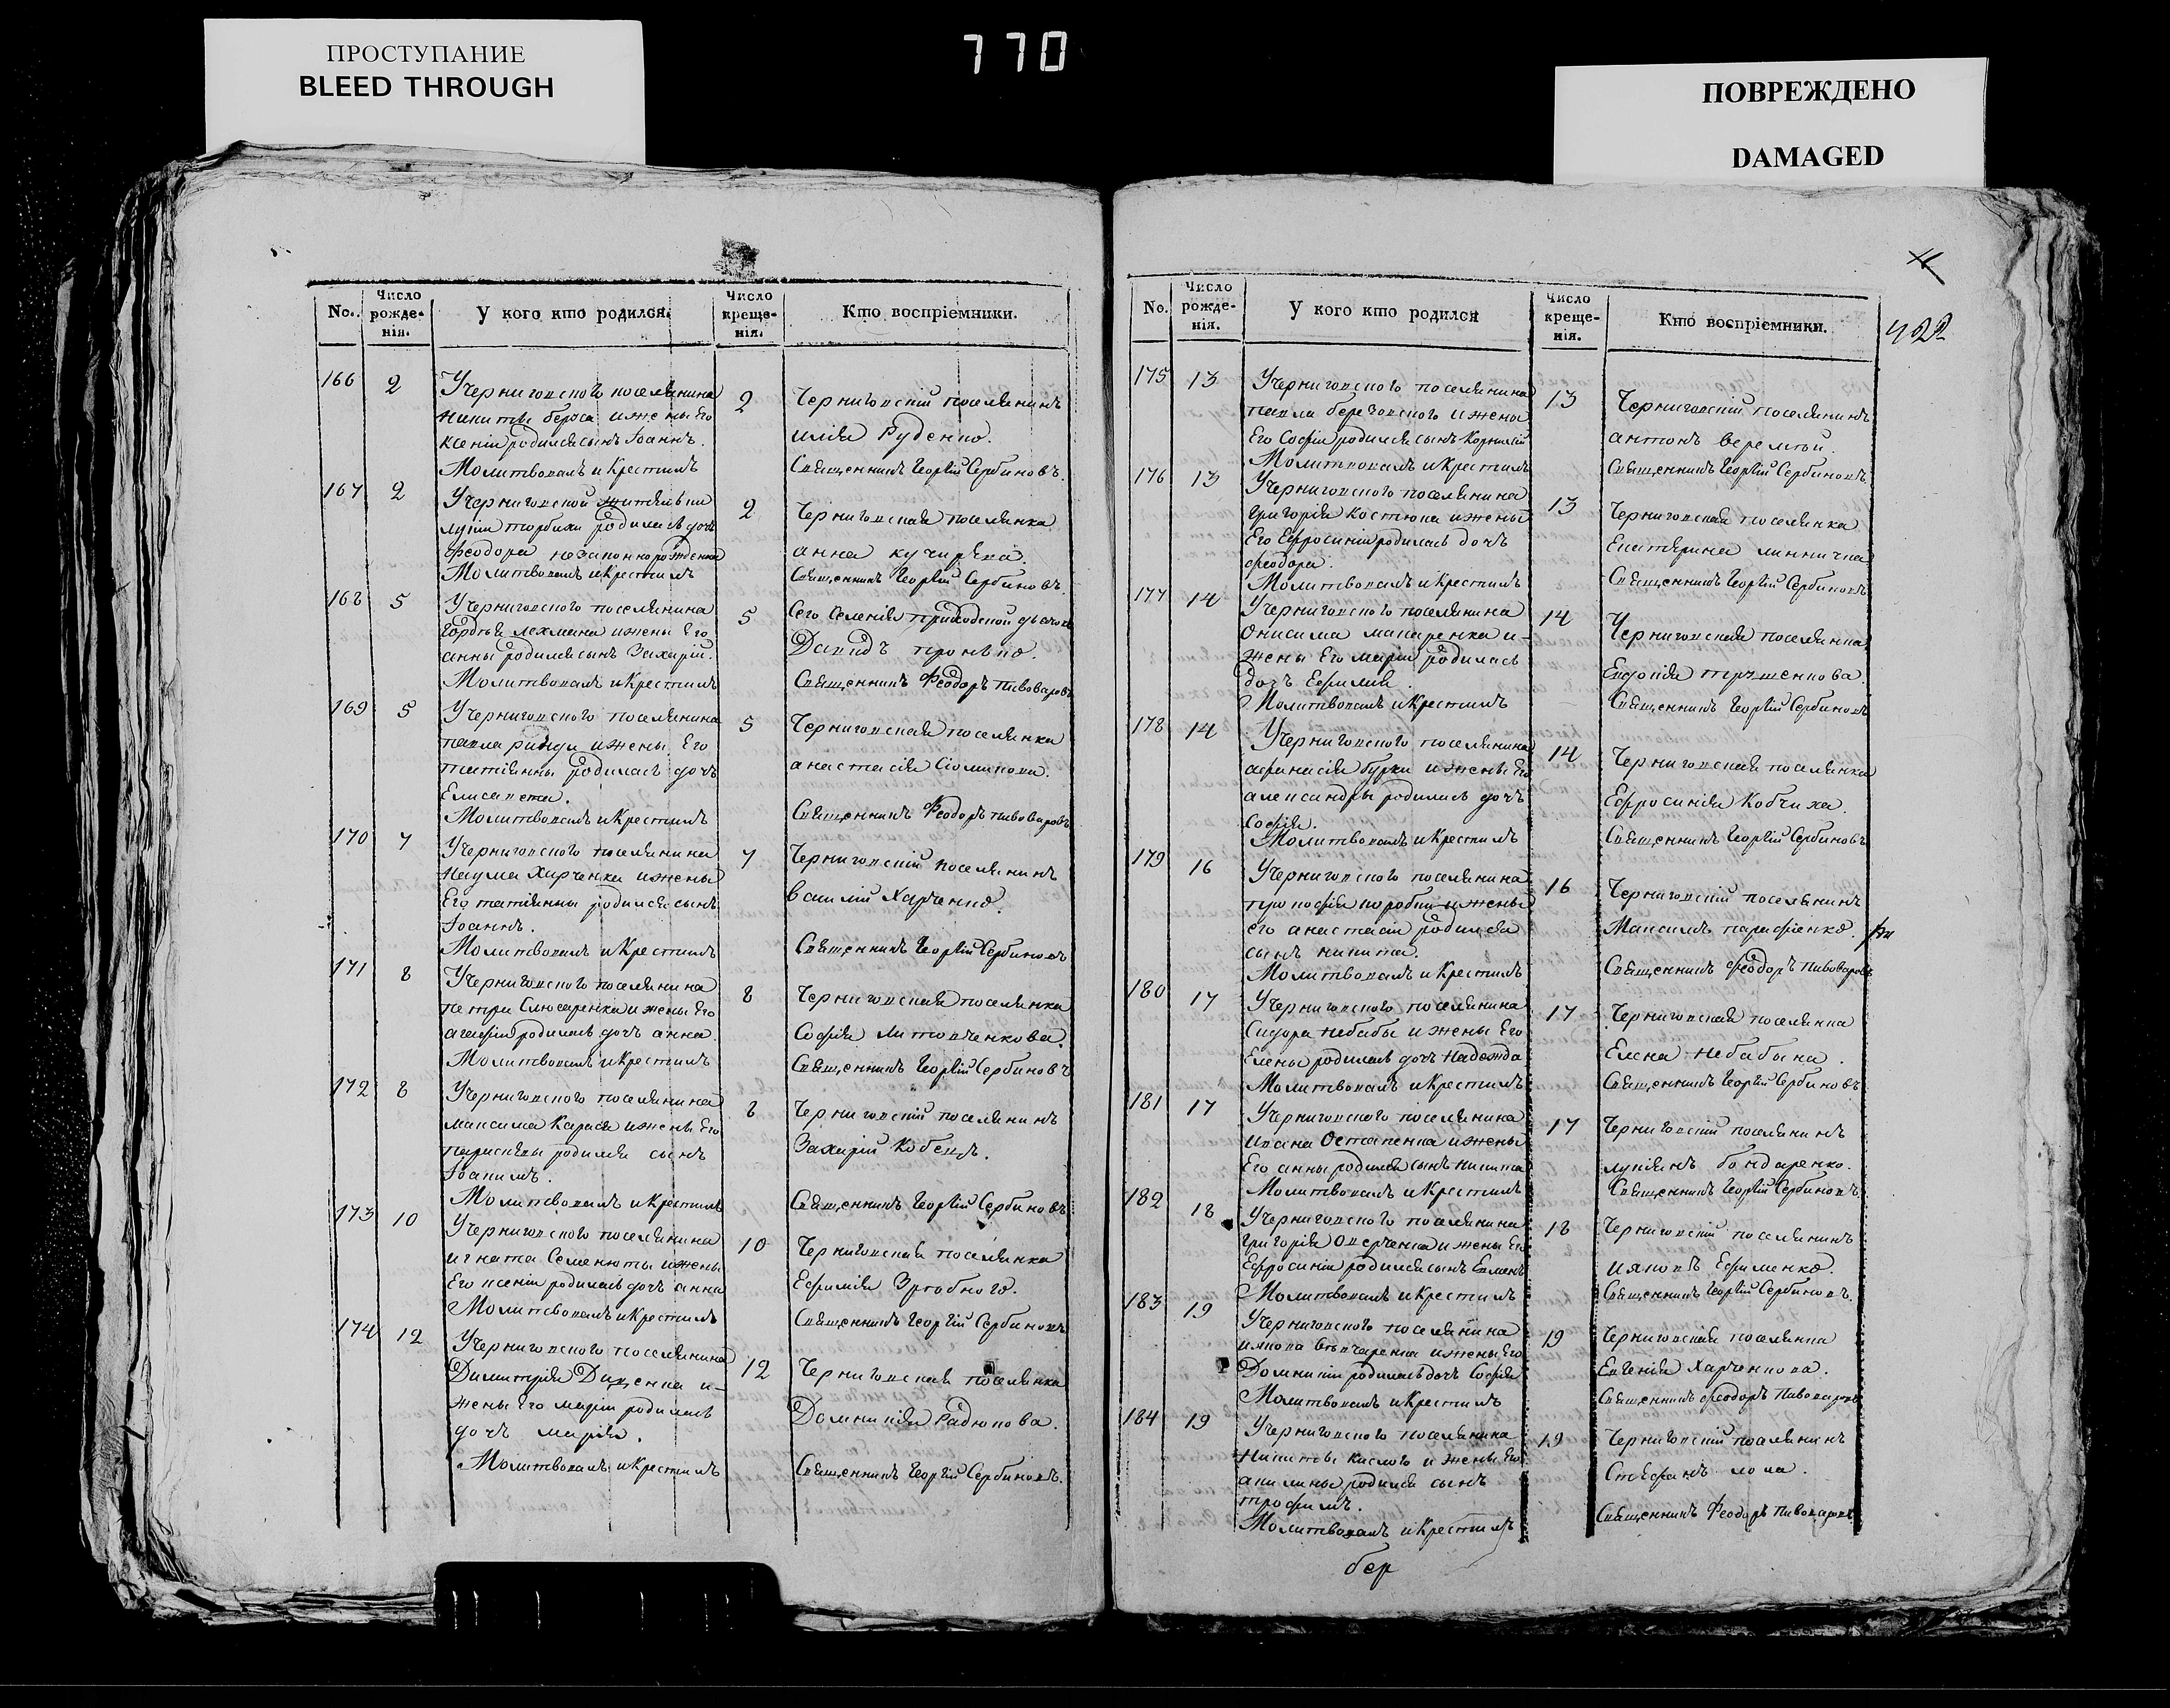 ПРОСТУПАНИЕ
BLEED THROUGH
770
ПОВРЕЖДЕНО
DAMAGED
No. Число рожде-нія. У кого кто родился. Число креще-нія. Кто воспріемники.
166 2 Учерниговского поселянина 2 Черниговскій поселянинъ
никиты ижены Его илія Руденко.
ксеніи родился сынъ Іоаннъ.
Молитвовалъ и Крестилъ Священникъ Георгій Сербиновъ.
167 2 Учерниговской жительки 2 Черниговская поселянка
родилась дочь анна
феодора незаконнорожденна
Молитвовалъ и Крестилъ Священникъ Георгій Сербиновъ.
168 5 Учерниговского поселянина 5 Сего Селенія приходской
гордѣя лехмана ижены Его Давидъ
анны родился сынъ Захарій.
Молитвовалъ и Крестилъ Священникъ Феодоръ Пивоваровъ
169 5 Учерниговского поселянина 5 Черниговская поселянка
павла ижены Его анастасія
татіянны родилась дочь
Елисавета.
Молитвовалъ и Крестилъ Священникъ Феодоръ Пивоваровъ
170 7 Учерниговского поселянина 7 Черниговскій поселянинъ
наума Харченка ижены василій Харченко.
Его татіянны родился сынъ
Іоаннъ.
Молитвовалъ и Крестилъ Священникъ Георгій Сербиновъ
171 8 Учерниговского поселянина 8 Черниговская поселянка
петра Слюсаренка ижены Его Софія Литовченкова.
агафіи родилась дочь анна.
Молитвовалъ и Крестилъ Священникъ Георгій Сербиновъ
172 8 Учерниговского поселянина 8 Черниговскій поселянинъ
максима Карася ижены Его Захарій Кобецъ.
параскевы родился сынъ
Іоакимъ.
Молитвовалъ и Крестилъ Священникъ Георгій Сербиновъ
173 10 Учерниговского поселянина 10 Черниговская поселянка
игната Семенюты ижены Ефимія
Его ксеніи родилась дочь анна
Молитвовалъ и Крестилъ Священникъ Георгій Сербиновъ
174 12 Учерниговского поселянина 12 Черниговская поселянка
Димитрія и- Домникія Радюкова.
жены Его маріи родилась
дочь марія.
Молитвовалъ и Крестилъ Священникъ Георгій Сербиновъ.
No. Число рожде-нія. У кого кто родился Число креще-нія. Кто воспріемники.
422
175 13 Учерниговского поселянина 13 Черниговскій поселянинъ
павла береговского ижены антонъ веремѣй.
Его Софіи родился сынъ Корнилій
Молитвовалъ и Крестилъ Священникъ Георгій Сербиновъ
176 13 Учерниговского поселянина 13 Черниговская поселянка
григорія Костюка ижены Екатерина
Его Ефросиніи родилась дочь
феодора.
Молитвовалъ и Крестилъ Священникъ Георгій Сербиновъ
177 14 Учерниговского поселянина 14 Черниговская поселянка
Онисима макаренка и- Евдокія
жены Его маріи родилась
дочь Ефимія.
Молитвовалъ и Крестилъ Священникъ Георгій Сербиновъ
178 14 Учерниговского поселянина 14 Черниговская поселянка
афанасія бурки ижены Его Ефросинія Кобчиха.
александры родилась дочь
Софія.
Молитвовалъ и Крестилъ Священникъ Георгій Сербиновъ
179 16 Учерниговского поселянина 16 Черниговскій поселянинъ
прокофія ижены Максимъ парфіенко.
Его анастасіи родился
сынъ никита.
Молитвовалъ и Крестилъ Священникъ Феодоръ Пивоваровъ
180 17 Учерниговского поселянина 17 Черниговская поселянка
Сидора небабы ижены Его Елена небабына.
Елены родилась дочь Надежда
Молитвовалъ и Крестилъ Священникъ Георгій Сербиновъ.
181 17 Учерниговского поселянина 17 Черниговскій поселянинъ
ивана Остапенка ижены лукіянъ бондаренко.
Его анны родился сынъ никита
Молитвовалъ и Крестилъ Священникъ Георгій Сербиновъ.
182 18 Учерниговского поселянина 18 Черниговскій поселянинъ
григорія ижены Его ияковъ Ефименко.
Ефросиніи родился сынъ
Молитвовалъ и Крестилъ Священникъ Георгій Сербиновъ.
183 19 Учерниговского поселянина 19 Черниговская поселянка
иякова ижены Его Евгенія Харченкова.
Домникіи родилась дочь Софія
Молитвовалъ и Крестилъ Священникъ Феодоръ Пивоваровъ
184 19 Учерниговского поселянина 19 Черниговскій поселянинъ
Никиты кислого ижены Его Стефанъ
акилины родился сынъ
трофимъ.
Молитвовалъ и Крестилъ Священникъ Феодоръ Пивоваровъ
бер